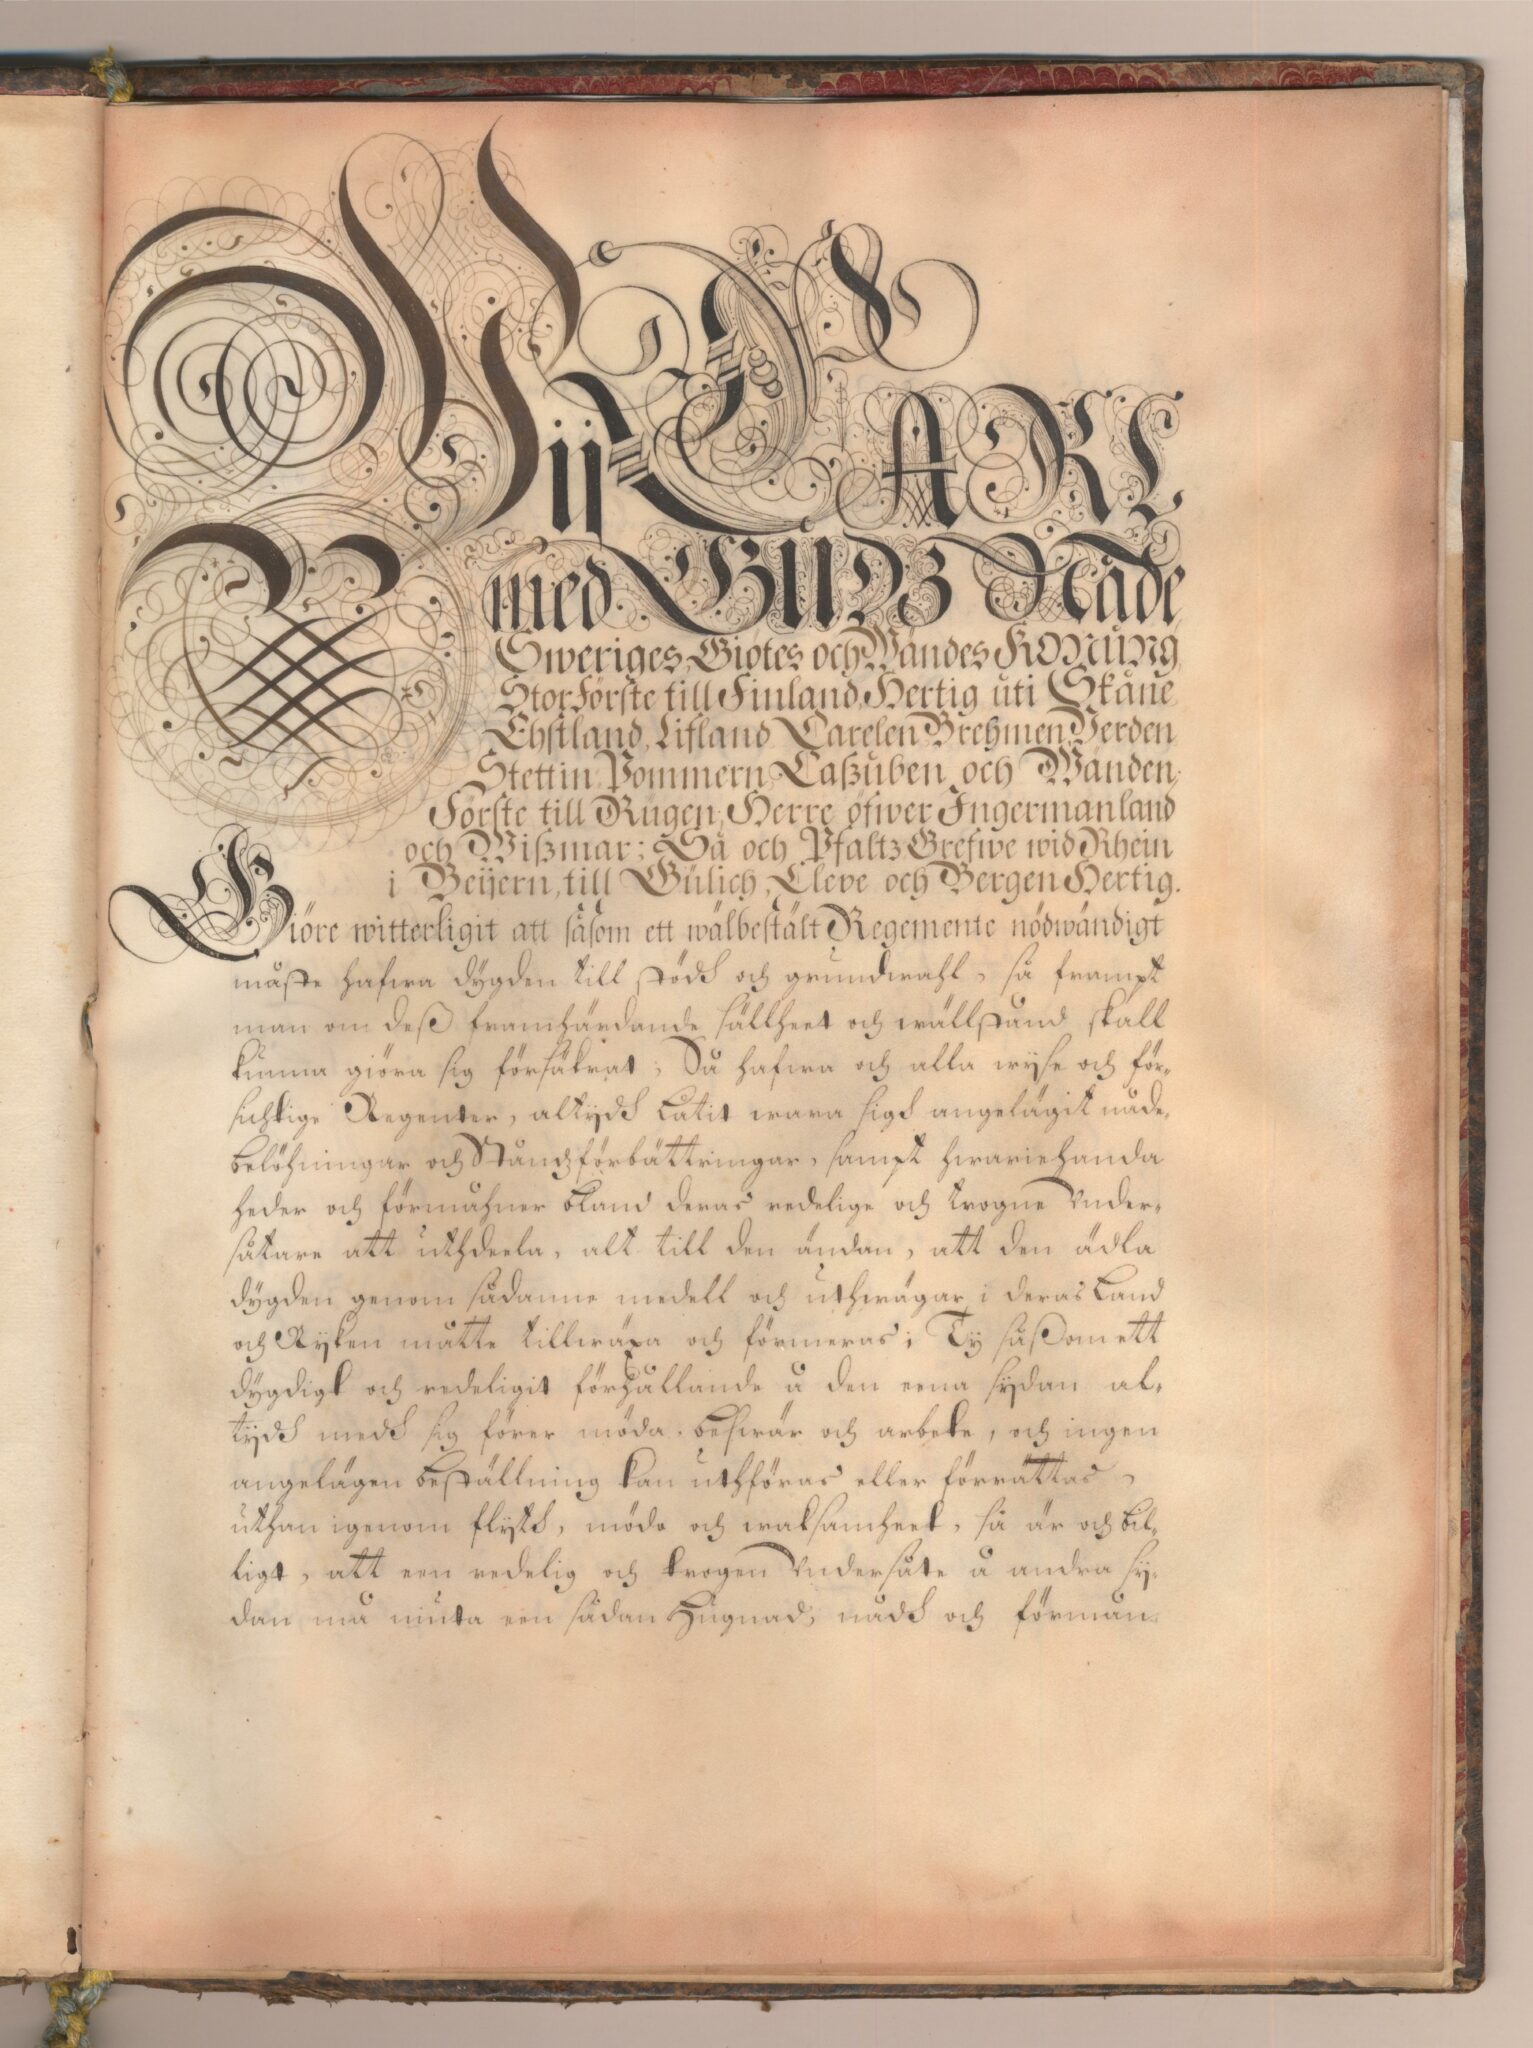 Wij CARL
med Gudz Nåde
Sweriges, Giötes och Wändes KONUNG
Storförste till Finland, Hertig uti Skåne
Ehstland, Lifland, Carelen, Brehmen, Verden
Stettin, Pommern, Caßuben och Wänden,
Förste till Rügen, Herre öfwer Ingermanland
och Wißmar; Så och Pfaltz Grefwe wid Rhein
i Beijern, till Gülich, Cleve och Bergen Hertig.
Giöre witterligit att såsom ett wälbestält Regemente nödwändigt
måste hafwa dygden till stödh och grundwahl, så frampt
man om deß framhärdande sällheet och wällstånd skall
kunna giöra sig försäkrat; Så hafwa och alla wyse och för-
sichtige Regenter, altydh Låtit wara sigh angelägit nåde-
belöhningar och Ståndzförbättringar, sampt hwariehanda
heder och förmåhner bland deras redelige och trogne Under-
såtare att uthdeela, alt till den ändan, att den ädla
dygden genom sådanne medell och uthwägar i deras Land
och Ryken måtte tillwäxa och förmeras; Ty såßom ett
dygdigt och redeligit förhållande å den eena sydan al-
tydh medh sig förer möda, beswär och arbete, och ingen
angelägen beställning kan uthföras eller förrättas,
uthan igenom flyth, möda och waksamheet, så är och bil-
ligt, att een redelig och trogen Undersåte å andra sy-
dan må niuta een sådan Hugnad, nådh och förmån